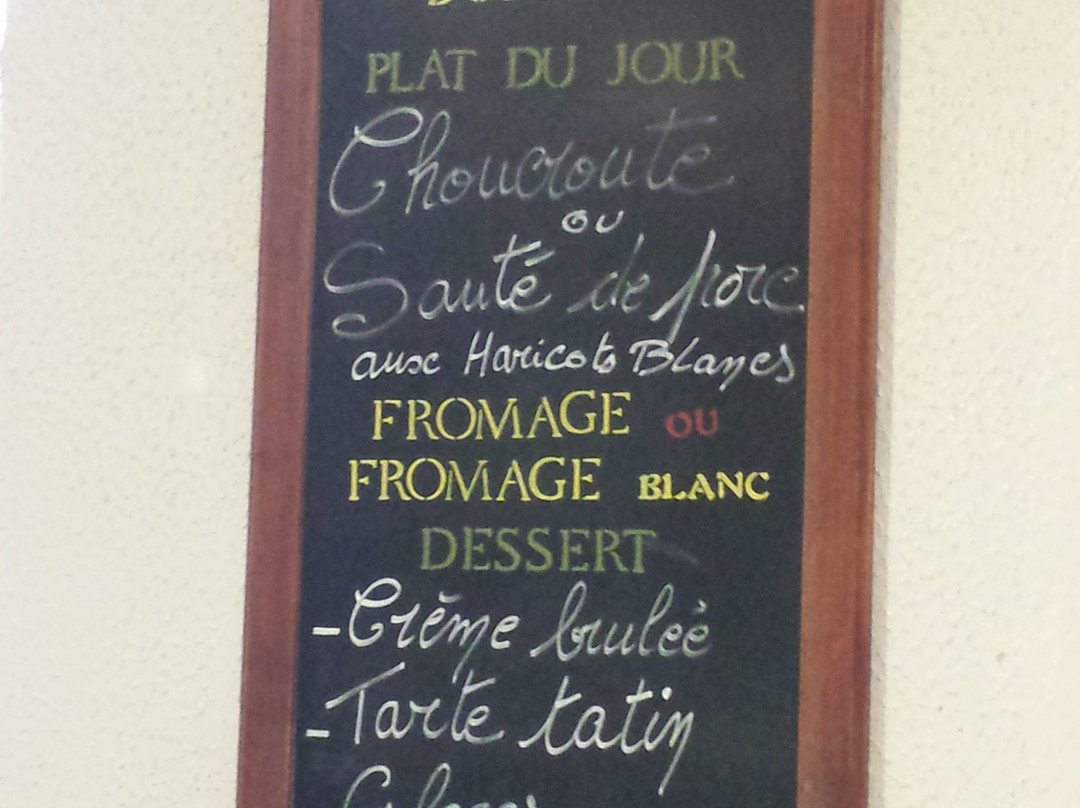 PLAT DU JOUR
Choucroute
ou
Sauté de porc
aux Haricots Blancs
FROMAGE OU
FROMAGE BLANC
DESSERT
-Crème brulée
-Tarte tatin